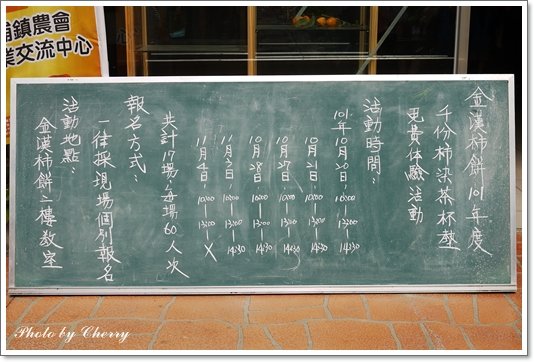 埔鎮農會
業交流中心
金漢柿餅101年度
千份柿染茶杯墊
免費体驗活動
活動時間：
101年10月20日，10:00－13:00－14:30
10月21日，10:00－13:00－14:30
10月27日，10:00－13:00－14:30
10月28日，10:00－13:00－14:30
11月3日，10:00－13:00－14:30
11月4日，10:00－13:00－X
共計17場，每場60人次
報名方式：
一律採現場個別報名
活動地點：
金漢柿餅二樓教室
Photo by Cherry